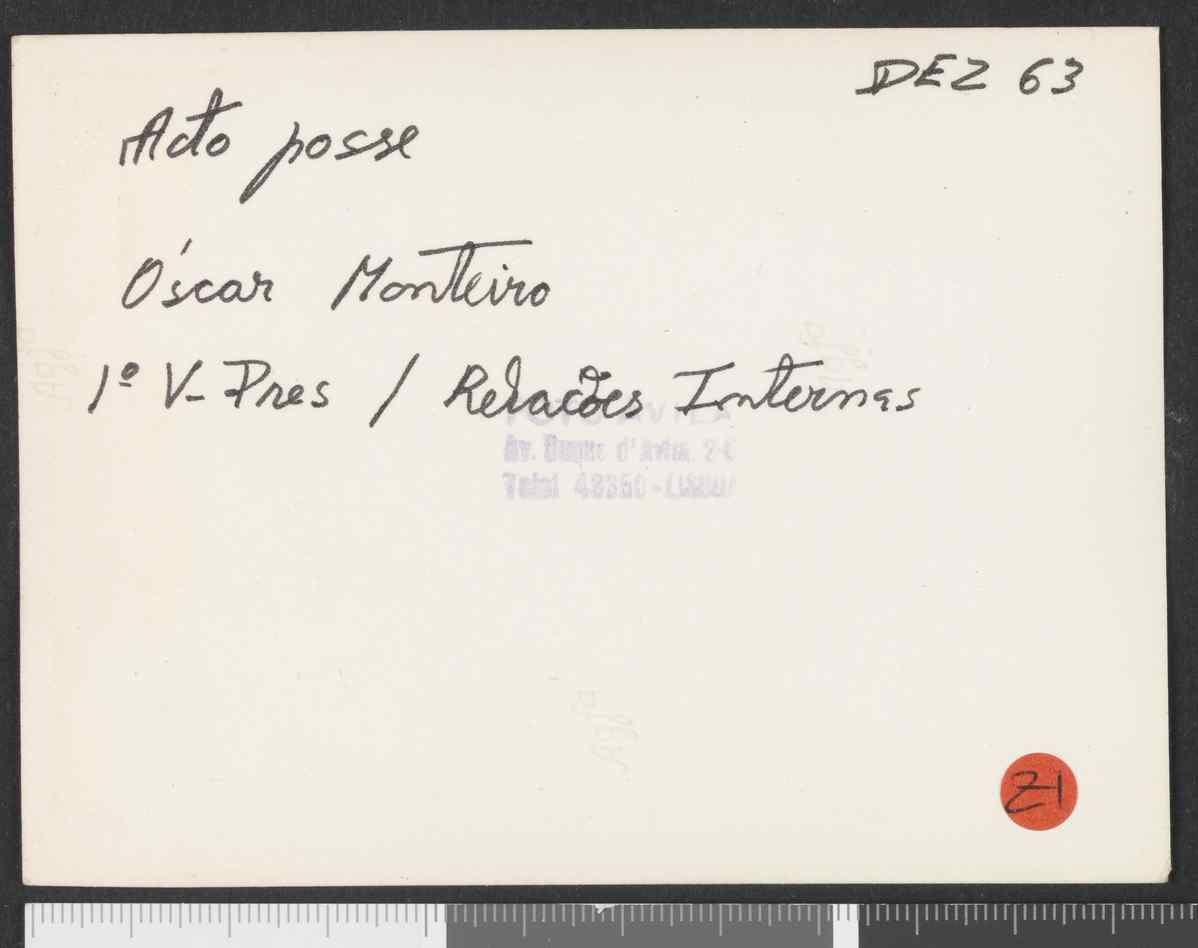 DEZ 63
Acto posse
Óscar Monteiro
1º V-Pres / Relações Internas
FOTO AVILA
Av. Duque d'Avila,
Telef 48350 - LISBOA
Z1